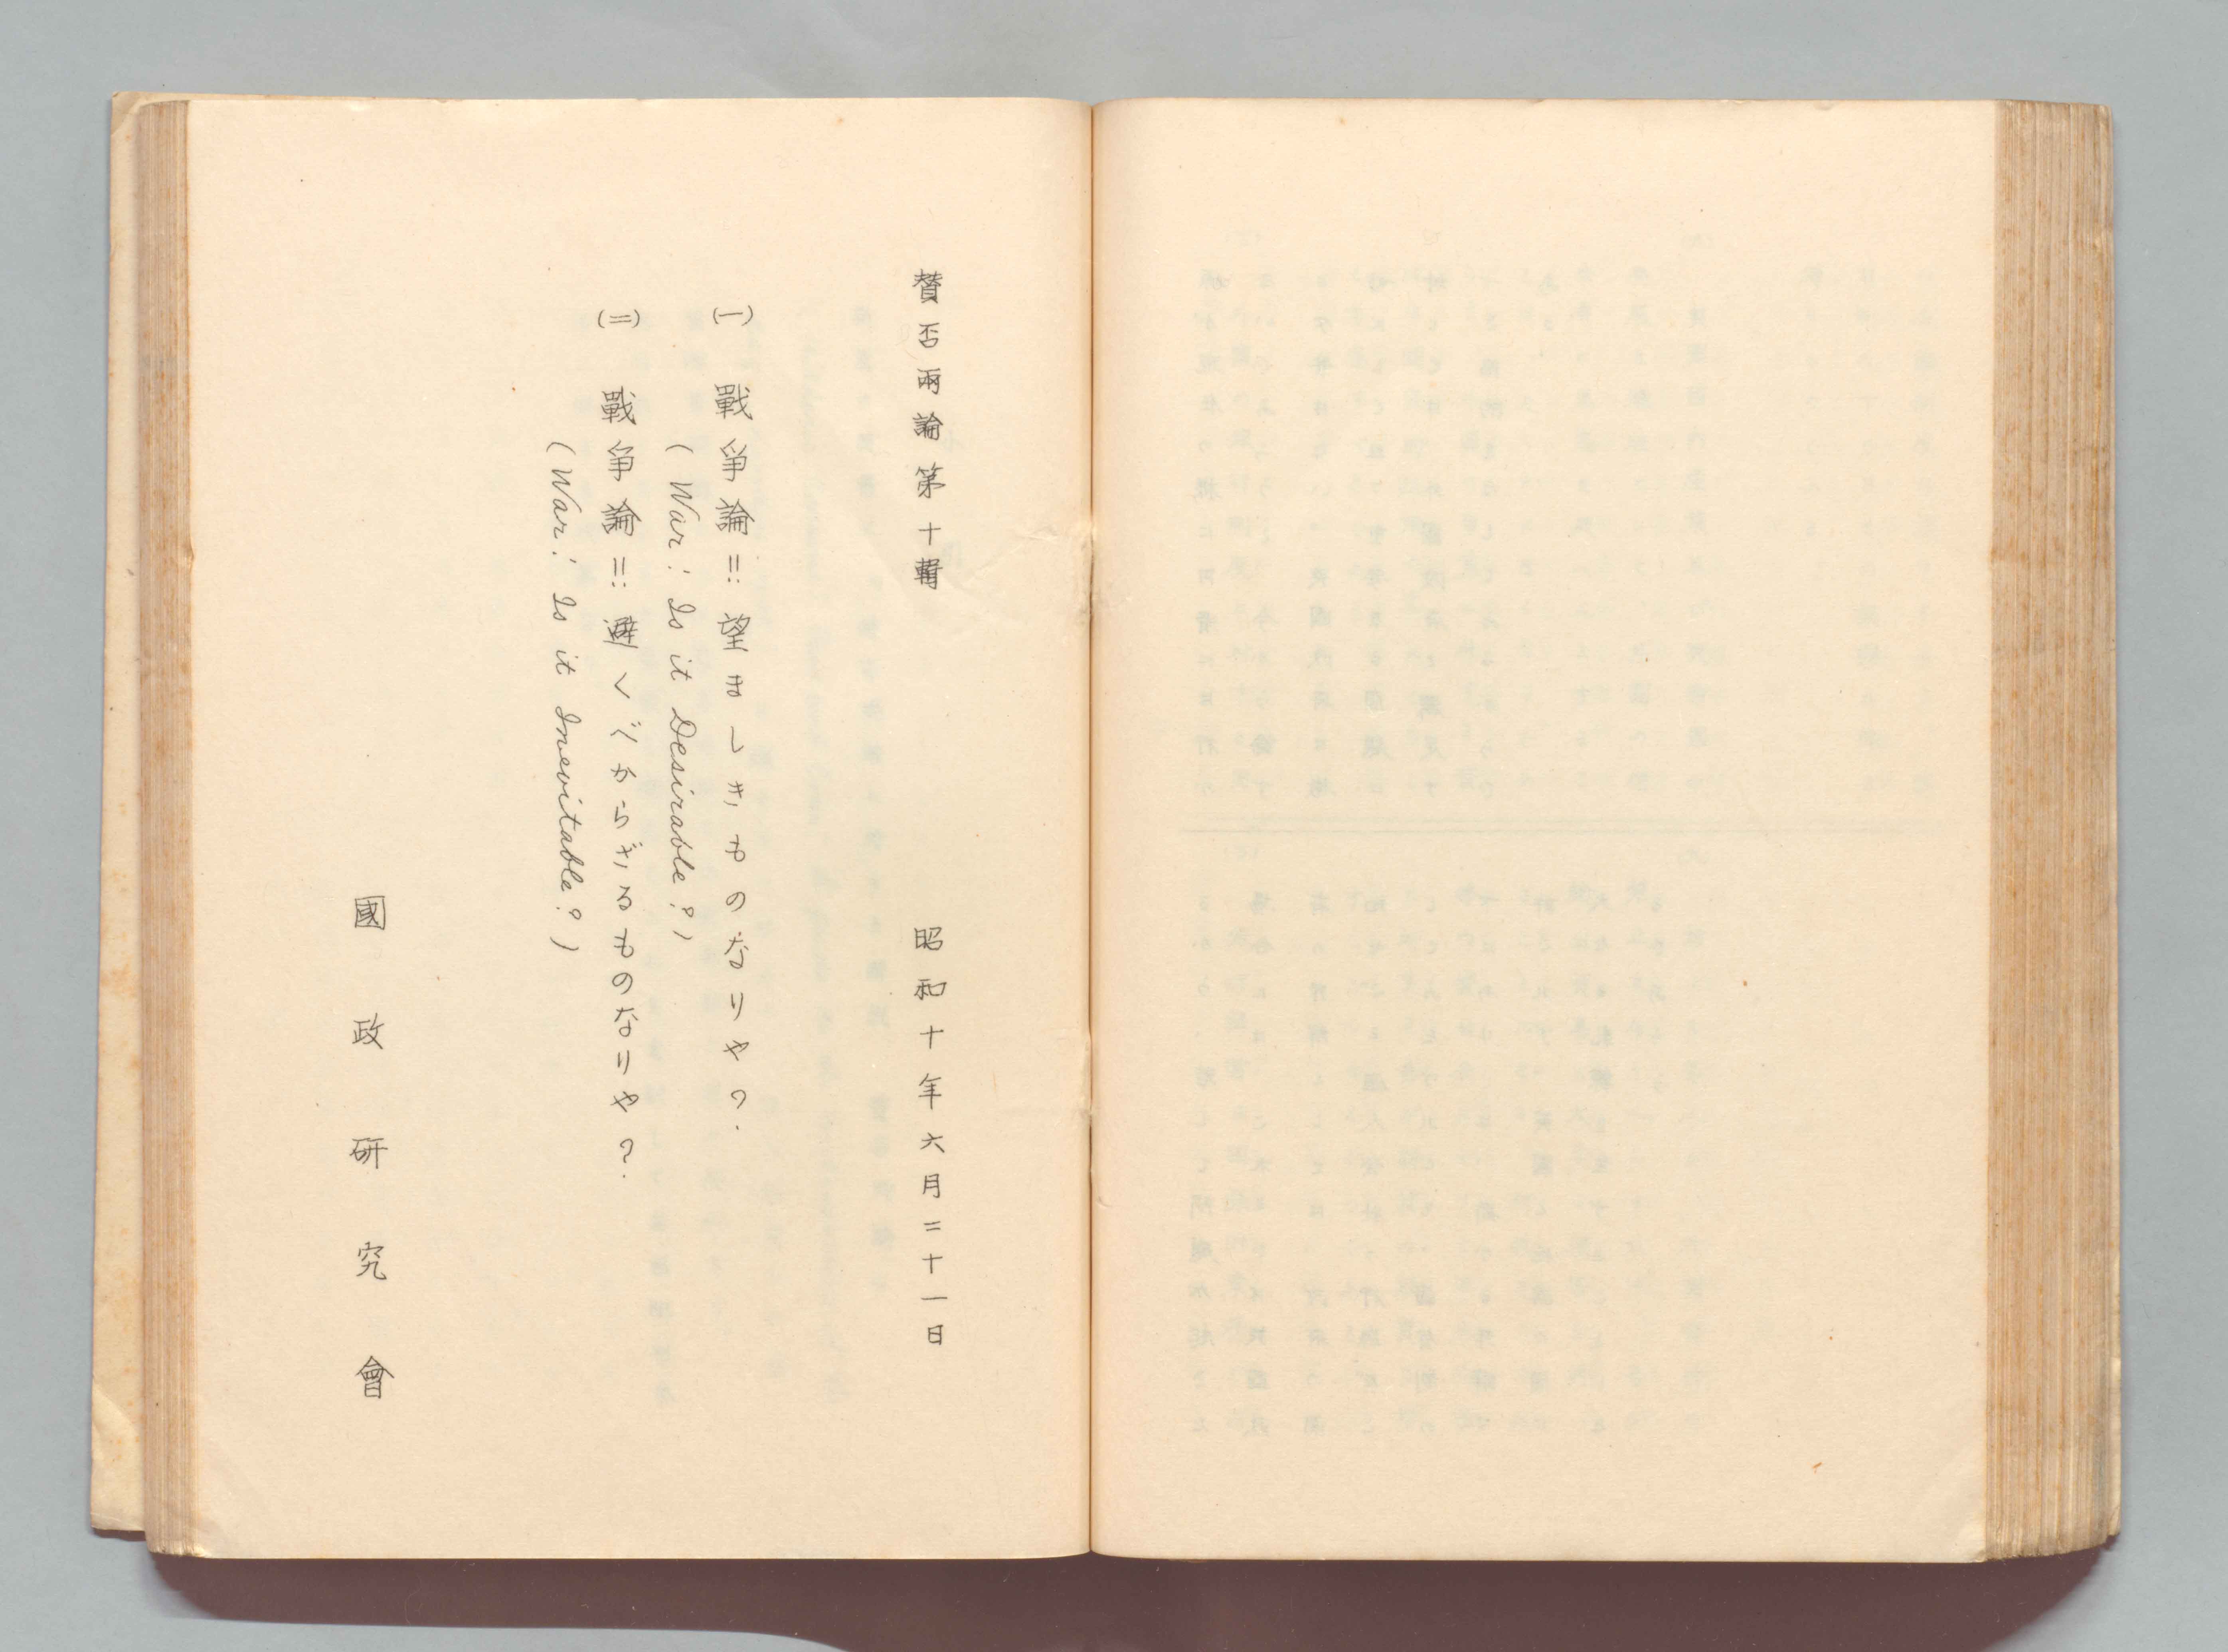 賛否兩論第十輯 昭和十年六月二十一日
(一) 戰爭論!! 望ましきものなりや?
(War: Is it Desirable?)
(二) 戰爭論!! 避くべからざるものなりや?
(War: Is it Inevitable?)
國政研究會